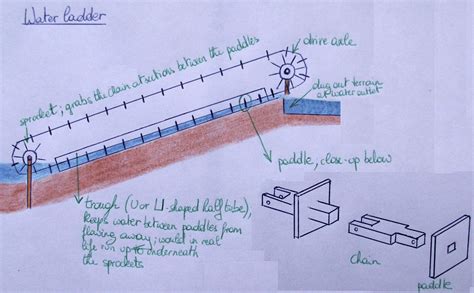 Water ladder
sprocket; grabs the chain at sections between the paddles
drive axle
dug out terrain
at water outlet
paddle; close-up below
trough (U or LI-shaped half tube),
keeps water between paddles from
flowing away; would in real
life run up to underneath
the sprockets
chain
paddle